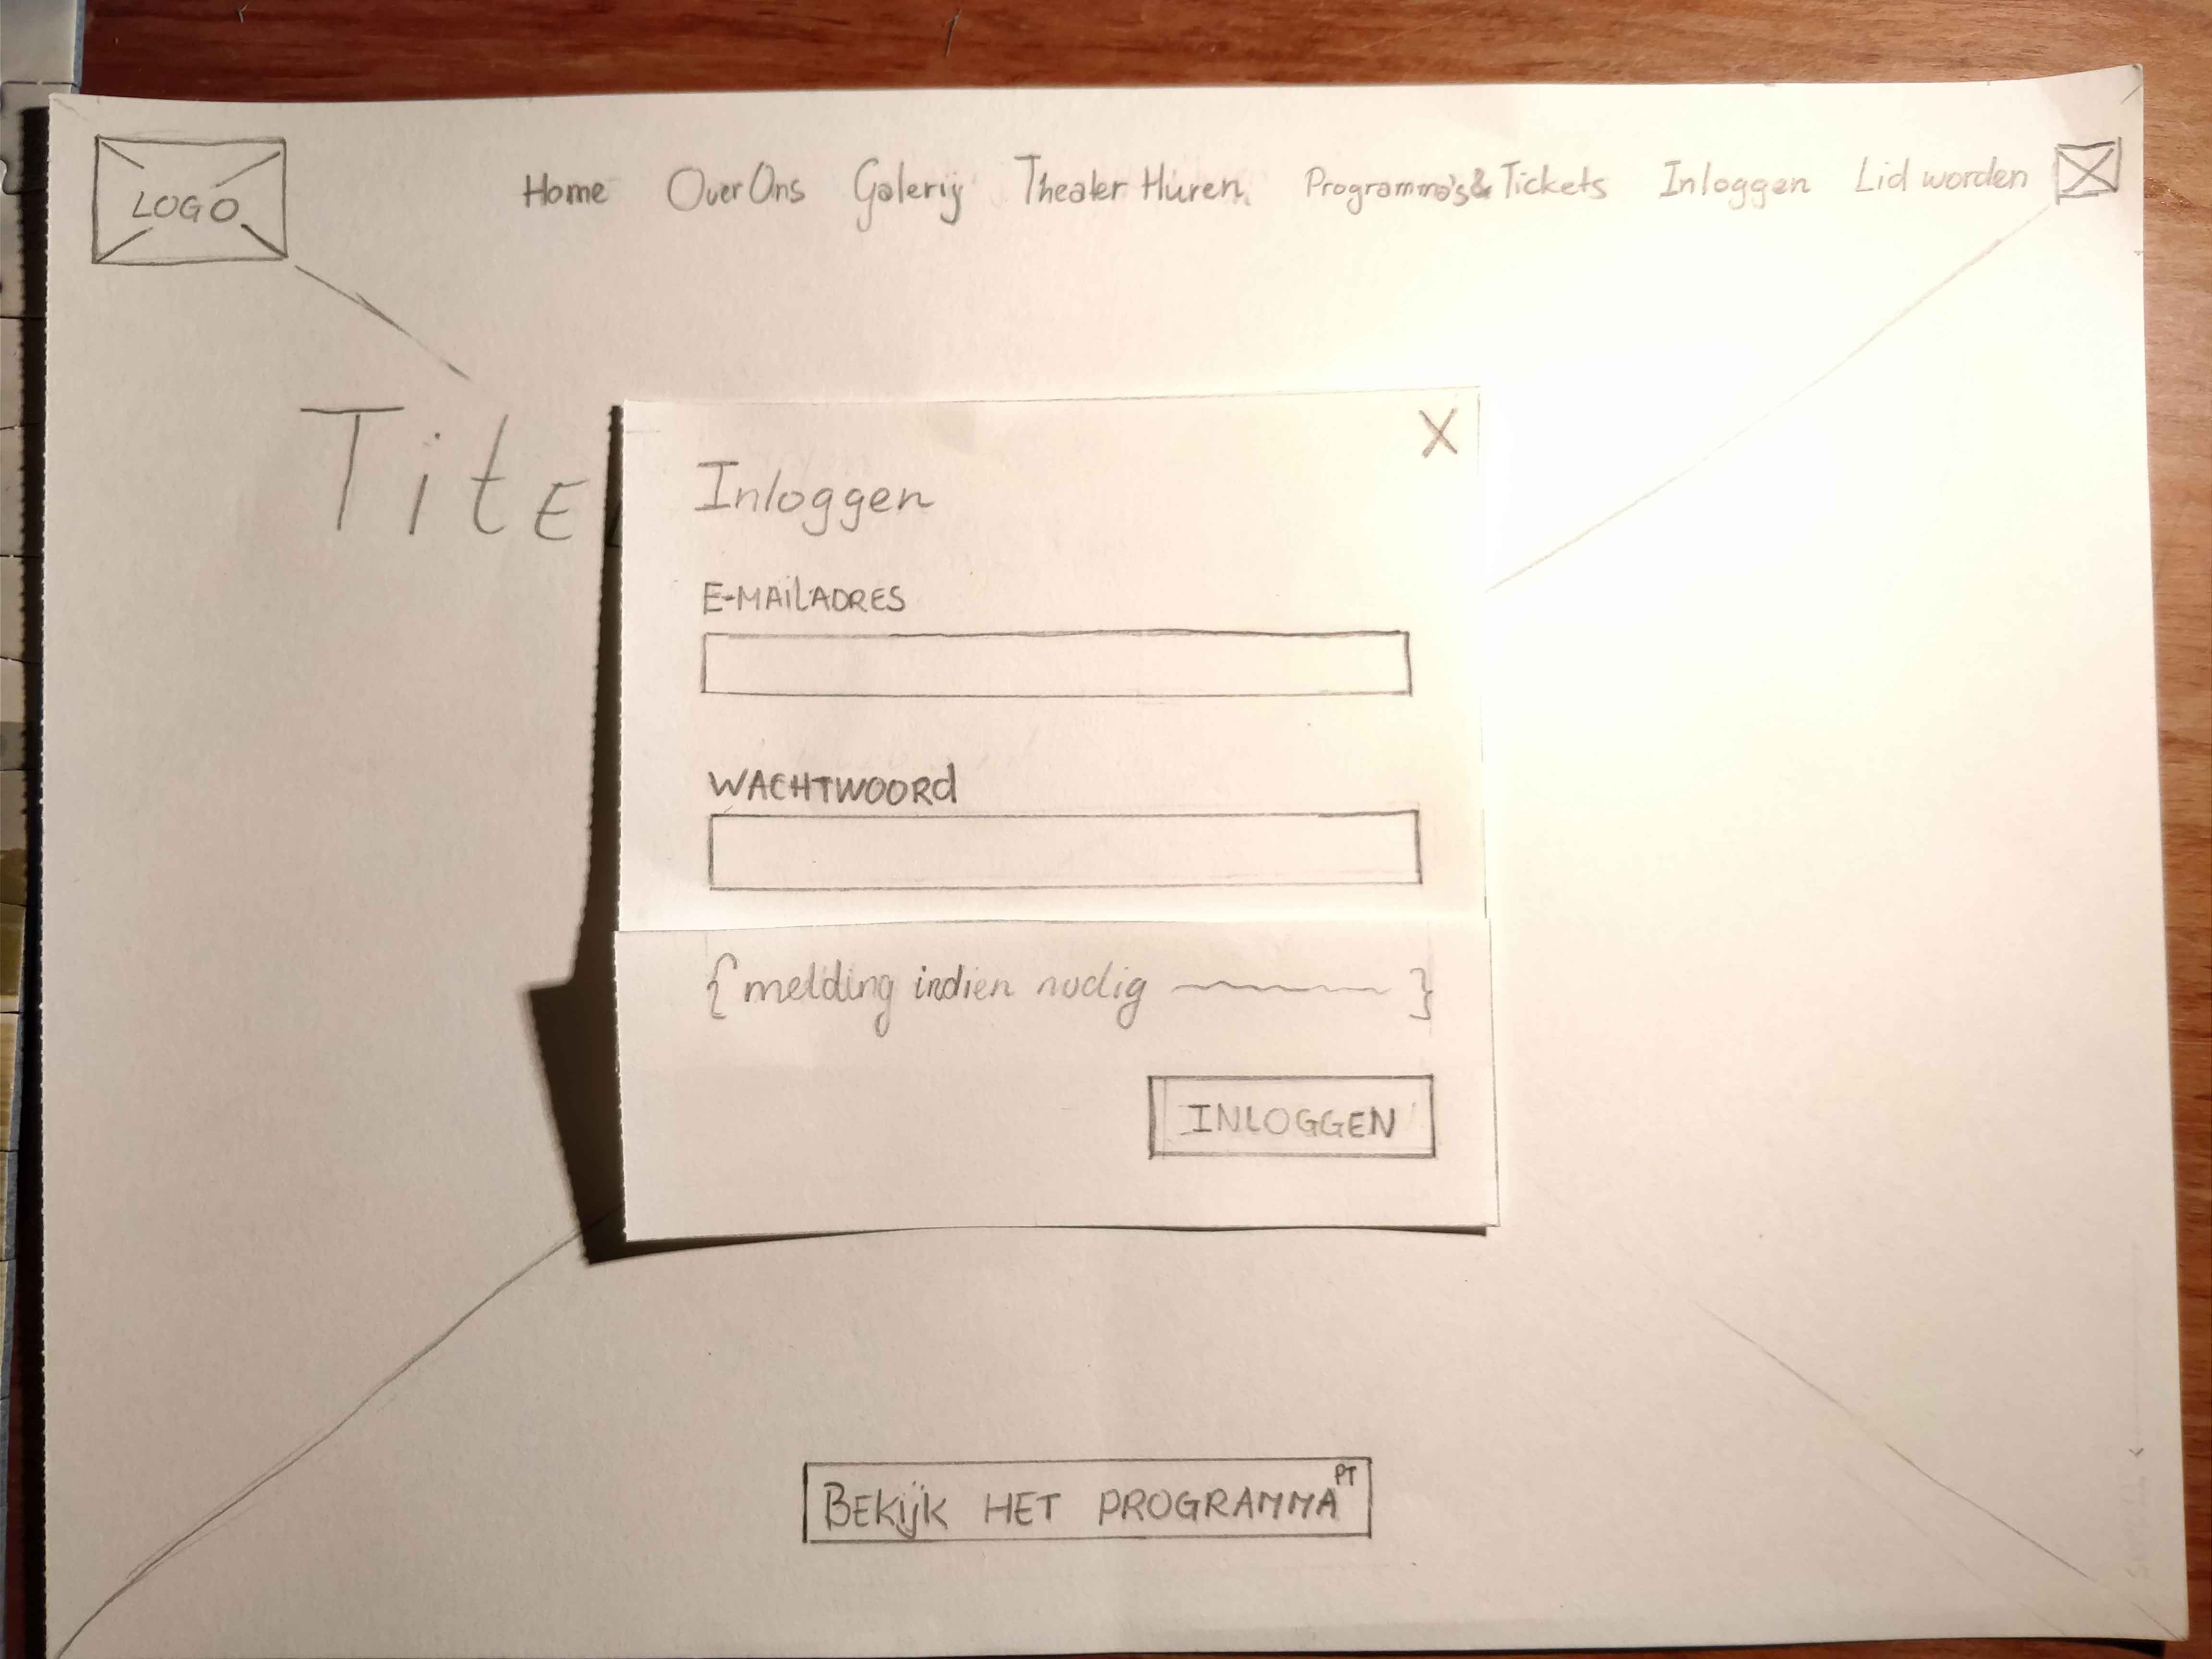 LOGO
Home Over Ons Galerij Theater Huren Programma's & Tickets Inloggen Lid worden
TitE
X
Inloggen
E-MAiLADRES
WACHTWOORd
{ melding indien nodig }
INLOGGEN
BEKijK HET PROGRAMMA PT